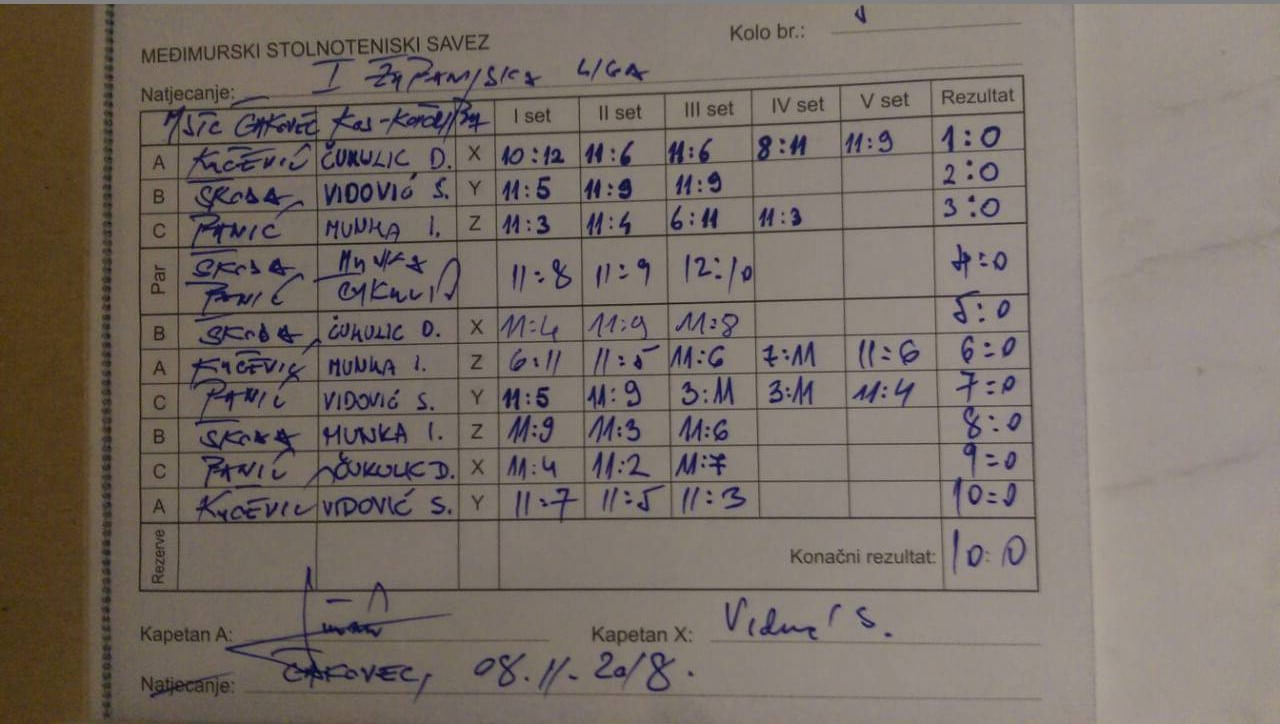 Kolo br.:
MEĐIMURSKI STOLNOTENISKI SAVEZ
Natjecanje: I ŽUPANIJSKA LIGA
STC ČAKOVEC I set II set III set IV set V set Rezultat
A KUČEVIĆ ČUKULIC D. X 10:12 11:6 11:6 8:11 11:9 1:0
B ŠKODA VIDOVIĆ S. Y 11:5 11:9 11:9 2:0
C PANIĆ MUNKA I. Z 11:3 11:4 6:11 11:3 3:0
Par ŠKODA MUNKA 11:8 11:9 12:10 4:0
PANIĆ
B ŠKODA ČUKULIC D. X 11:4 11:9 11:8 5:0
A KUČEVIĆ MUNKA I. Z 6:11 11:5 11:6 7:11 11:6 6:0
C PANIĆ VIDOVIĆ S. Y 11:5 11:9 3:11 3:11 11:4 7:0
B ŠKODA MUNKA I. Z 11:9 11:3 11:6 8:0
C PANIĆ ČUKULIC D. X 11:4 11:2 11:7 9:0
A KUČEVIĆ VIDOVIĆ S. Y 11:7 11:5 11:3 10:0
Rezerve Konačni rezultat: 10:0
Kapetan A: Kapetan X: Vidović S.
Natjecanje: ČAKOVEC, 08.11.2018.